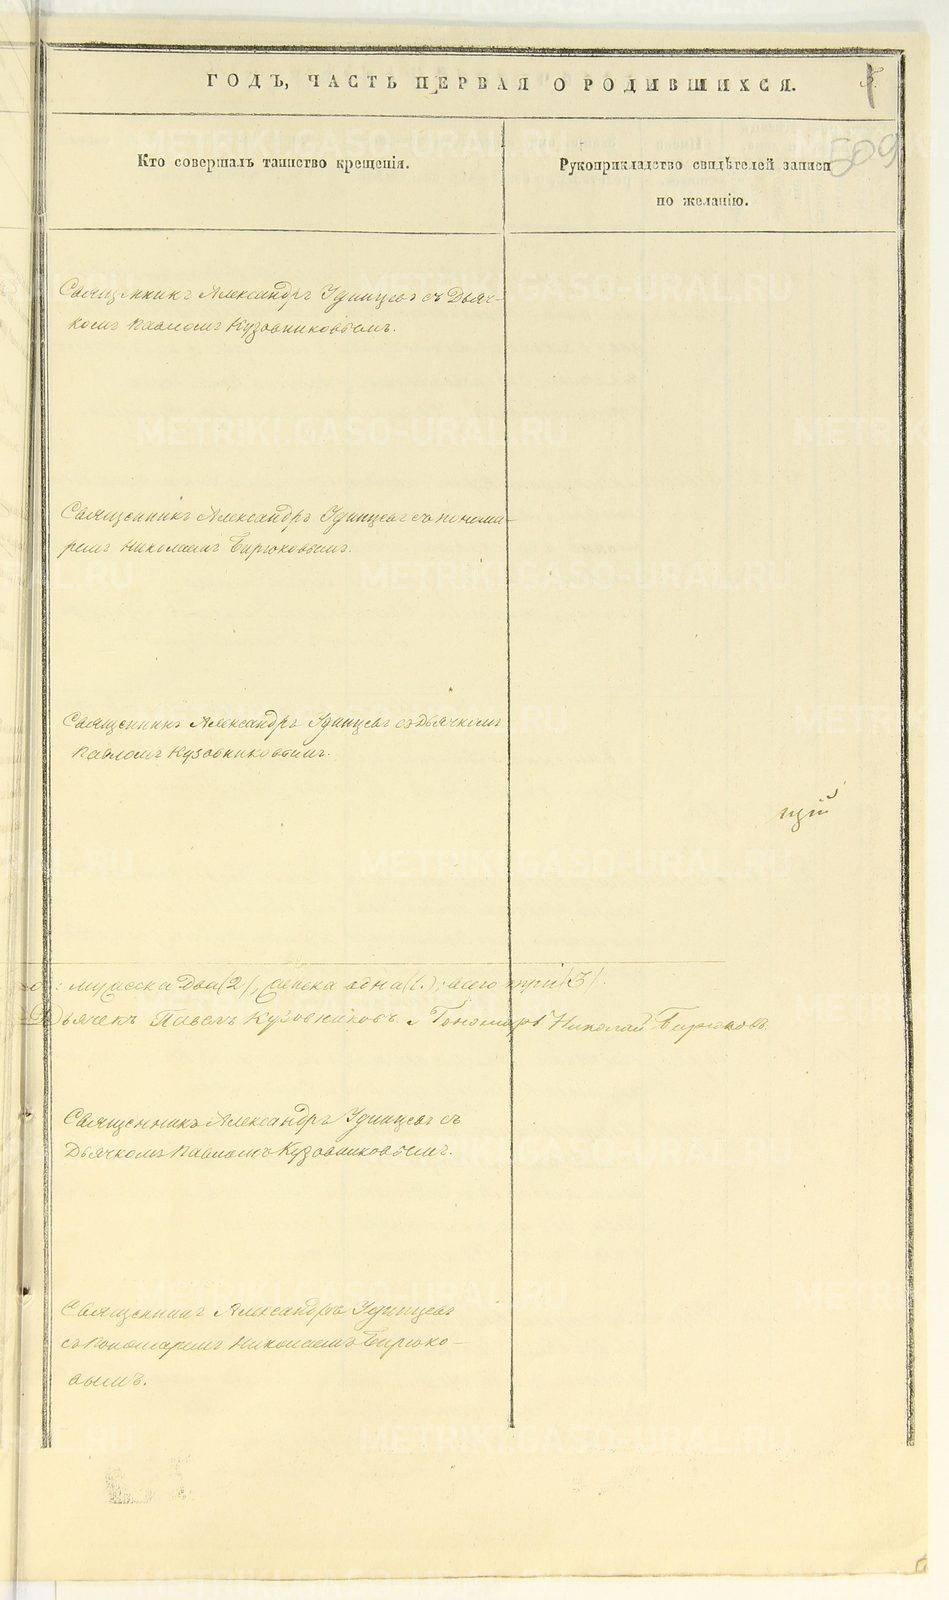 ГОДЪ, ЧАСТЬ ПЕРВАЯ О РОДИВШИХСЯ.
509
Кто совершалъ таинство крещенія.
Рукоприкладство свидѣтелей записи
по желанію.
Священникъ Александръ Удинцевъ съ Дьяч-
комъ Павломъ Кузовниковымъ.
Священникъ Александръ Удинцевъ съ понома-
ремъ Николаемъ Бирюковымъ.
Священникъ Александръ Удинцевъ съ Дьячкомъ
Павломъ Кузовниковымъ.
: мужеска два (2), женска одна (1.); всего три (3).
Дьячекъ Павелъ Кузовниковъ. Пономарь Николай Бирюковъ.
Священникъ Александръ Удинцевъ съ
Дьячкомъ Павломъ Кузовниковымъ.
Священникъ Александръ Удинцевъ
съ Пономаремъ Николаемъ Бирюко-
вымъ.
METRIKI.GASO-URAL.RU